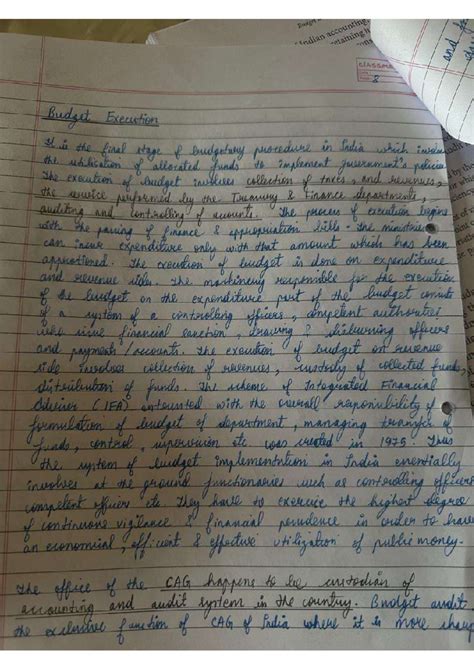 Indian accounting
CLASSMATE
8
and
Budget Execution
It is the final stage of budgetary procedure in India which involves
the utilisation of allocated funds to implement government's policies
The execution of budget involves collection of taxes, and revenues,
the service performed by the Treasury & Finance Departments,
auditing and controlling of accounts. The process of execution begins
with the passing of finance & appropriation bills. The ministries
can incur expenditure only with that amount which has been
apportioned. The execution of budget is done on expenditure
and revenue side. The machinery responsible for the execution
of the budget on the expenditure part of the budget consists
of a system of a controlling officers, competent authorities
who issue financial sanction, drawing & disbursing officers
and payments/accounts. The execution of budget on revenue
side involves collection of revenues, custody of collected funds,
distribution of funds. The scheme of Integrated Financial
Advisor (IFA) entrusted with the overall responsibility of
formulation of budget of department, managing transfer of
funds, control, supervision etc was created in 1975. Thus
the system of budget implementation in India essentially
involves at the ground functionaries such as controlling officers
competent officers etc. They have to exercise the highest degree
of continuous vigilance & financial prudence in order to have
an economical, efficient & effective utilization of public money.
The office of the CAG happens to be custodian of
accounting and audit system in the country. Budget audit
the exclusive function of CAG of India where it is more sharp